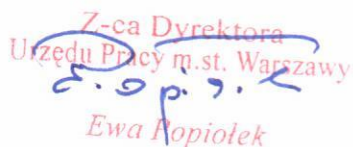 Z-ca Dyrektora
Urzędu Pracy m.st. Warszawy
Ewa Popiołek